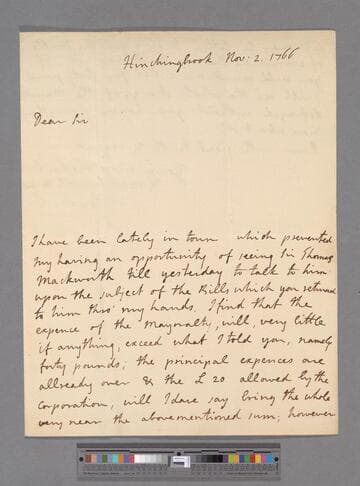 Hinchingbrook Nov: 2. 1766
Dear Sir
I have been lately in town which prevented
my having an opportunity of seeing Sir Thomas
Mackworth till yesterday to talk to him
upon the subject of the Bills which you returned
to him thro' my hands. I find that the
expence of the Mayoralty, will, very little
if anything, exceed what I told you, namely
forty pounds; the principal expences are
allready over & the £ 20 allowed by the
Corporation, will I dare say bring the whole
very near the abovementioned sum; however